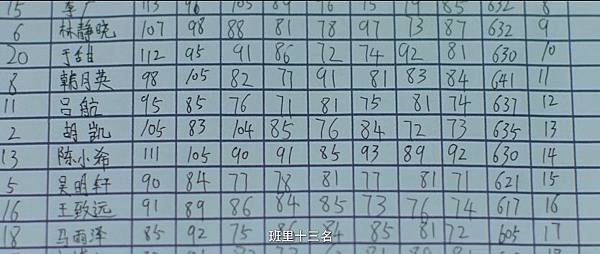 15 李广 113 96 105 89 96 15 19 85 632 8
6 林静晓 107 98 88 81 78 97 73 87 632 9
20 于甜 112 95 91 86 72 74 92 81 630 10
8 韩月英 98 105 82 77 91 81 83 84 641 11
11 吕航 95 85 76 71 81 75 81 74 637 12
2 胡凯 105 83 104 85 76 84 72 73 635 13
13 陈小希 111 105 90 91 85 93 89 92 630 14
5 吴明轩 90 84 77 78 81 77 81 71 621 15
16 王致远 91 89 86 84 85 73 76 74 617 16
18 马雨泽 85 92 75 86 84 85 81 72 605 17
班里十三名